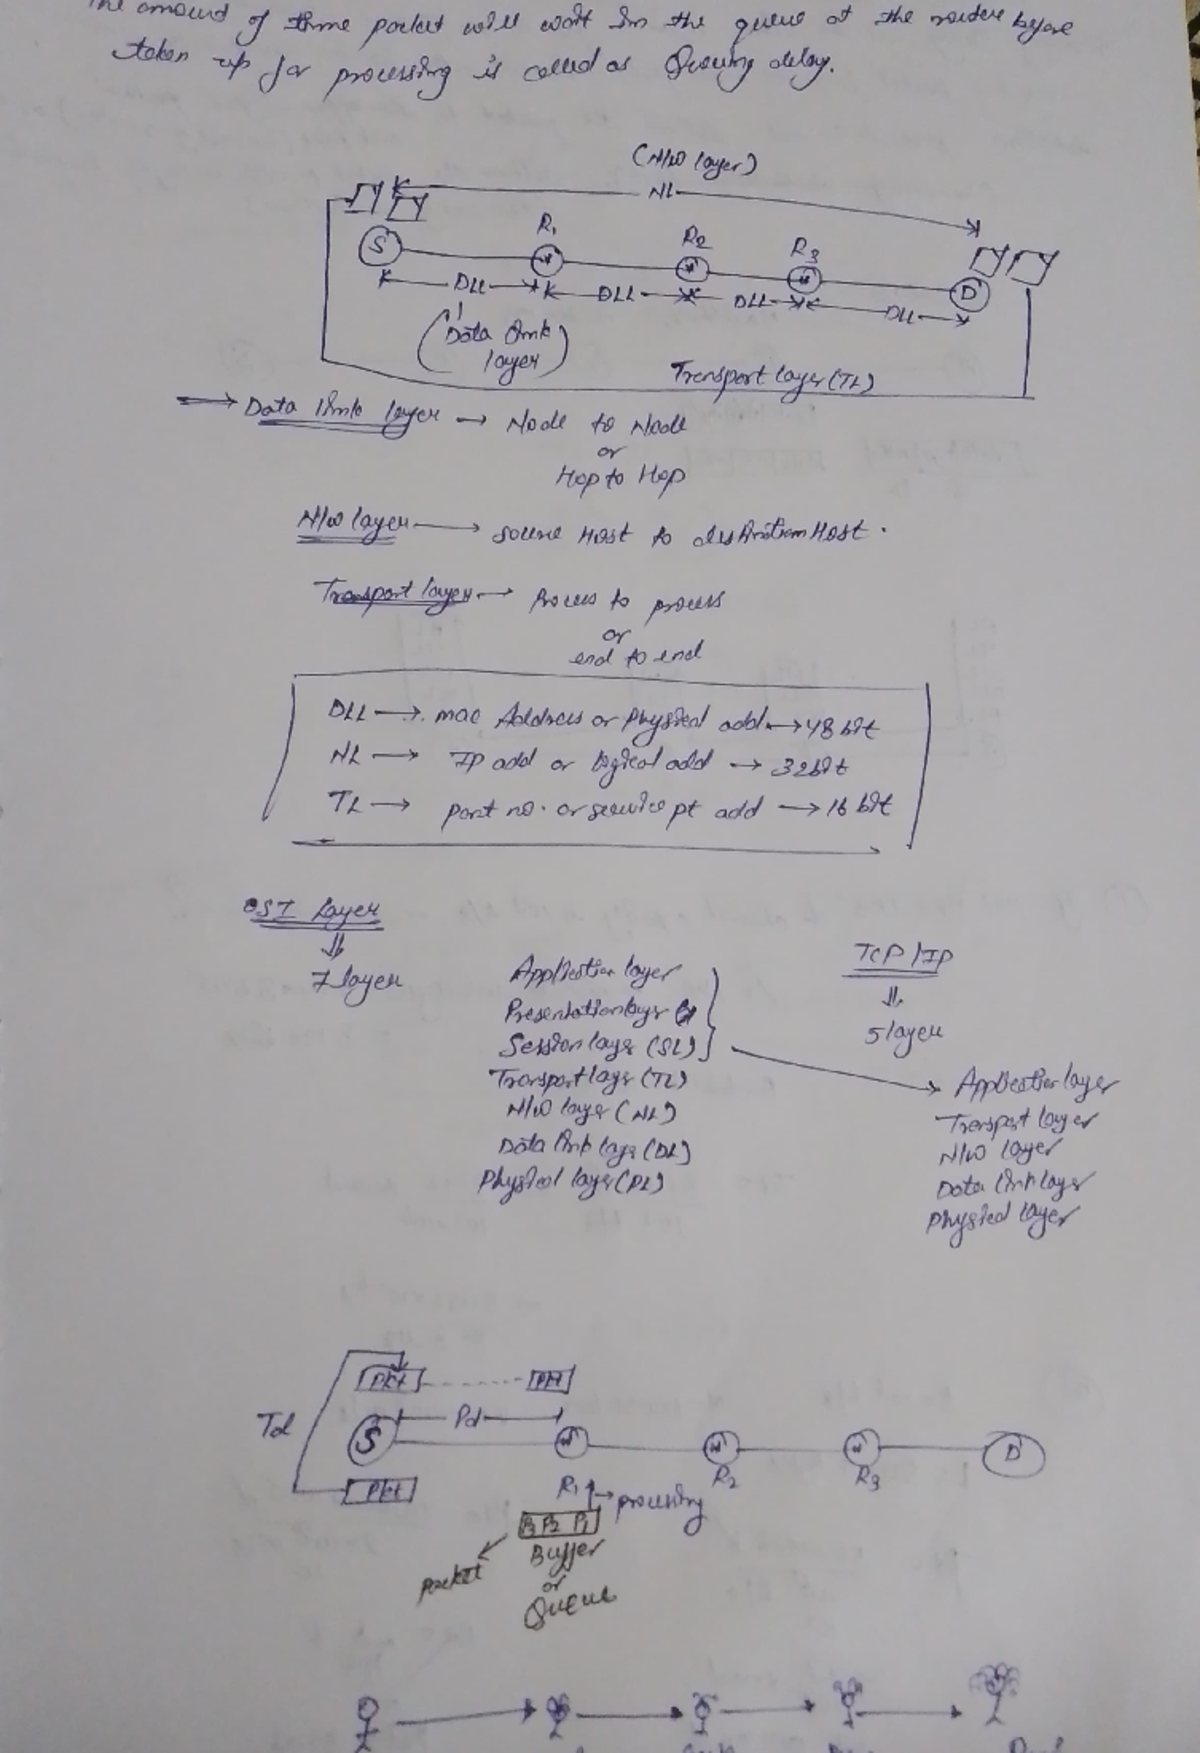 The amount of time packet will wait in the queue at the router before
taken up for processing is called as Queuing delay.
(N/W layer)
NL
S R1 R2 R3 D
DLL DLL DLL DLL
(Data link
layer)
Transport layer (TL)
Data link layer → Node to Node
or
Hop to Hop
N/W layer → source Host to destination Host.
Transport layer → Process to process
or
end to end
DLL → mac Address or Physical add → 48 bit
NL → IP add or logical add → 32 bit
TL → port no. or service pt add → 16 bit
OSI layer
7 layer
Application layer
Presentation layer
Session layer (SL)
Transport layer (TL)
N/W layer (NL)
Data link layer (DL)
Physical layer (PL)
TCP/IP
5 layer
Application layer
Transport layer
N/W layer
Data link layer
Physical layer
Pkt Pkt
Td Pd
S D
Pkt R1 → processing R2 R3
P3 P2 P1
packet Buffer
or
Queue